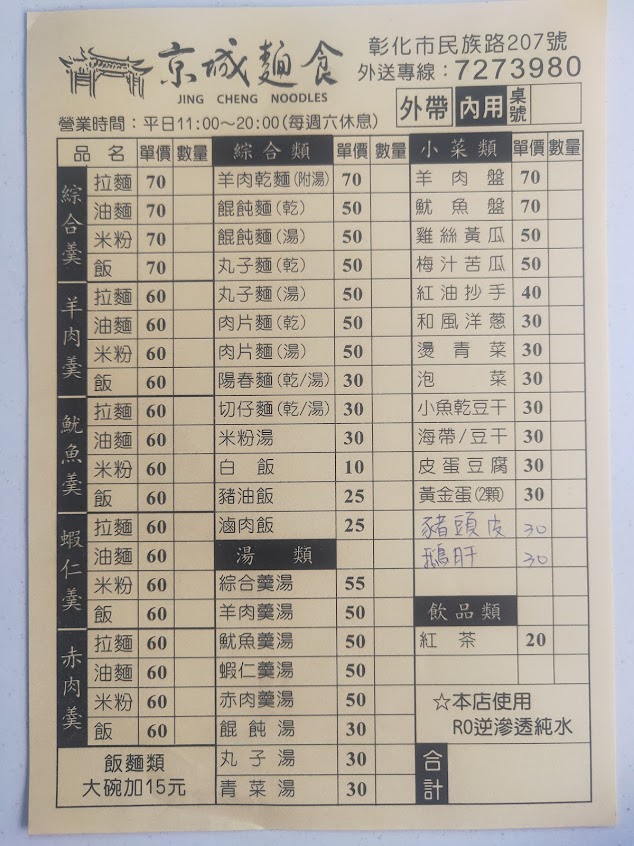 京城麵食
JING CHENG NOODLES
彰化市民族路207號
外送專線：7273980
外帶 內用 桌號
營業時間：平日11:00～20:00(每週六休息)
品名 單價 數量
綜合羹
拉麵 70
油麵 70
米粉 70
飯 70
羊肉羹
拉麵 60
油麵 60
米粉 60
飯 60
魷魚羹
拉麵 60
油麵 60
米粉 60
飯 60
蝦仁羹
拉麵 60
油麵 60
米粉 60
飯 60
赤肉羹
拉麵 60
油麵 60
米粉 60
飯 60
飯麵類
大碗加15元
綜合類 單價 數量
羊肉乾麵(附湯) 70
餛飩麵(乾) 50
餛飩麵(湯) 50
丸子麵(乾) 50
丸子麵(湯) 50
肉片麵(乾) 50
肉片麵(湯) 50
陽春麵(乾/湯) 30
切仔麵(乾/湯) 30
米粉湯 30
白飯 10
豬油飯 25
滷肉飯 25
湯類
綜合羹湯 55
羊肉羹湯 50
魷魚羹湯 50
蝦仁羹湯 50
赤肉羹湯 50
餛飩湯 30
丸子湯 30
青菜湯 30
小菜類 單價 數量
羊肉盤 70
魷魚盤 70
雞絲黃瓜 50
梅汁苦瓜 50
紅油抄手 40
和風洋蔥 30
燙青菜 30
泡菜 30
小魚乾豆干 30
海帶/豆干 30
皮蛋豆腐 30
黃金蛋(2顆) 30
豬頭皮 30
鵝肝 30
飲品類
紅茶 20
☆本店使用
RO逆滲透純水
合計